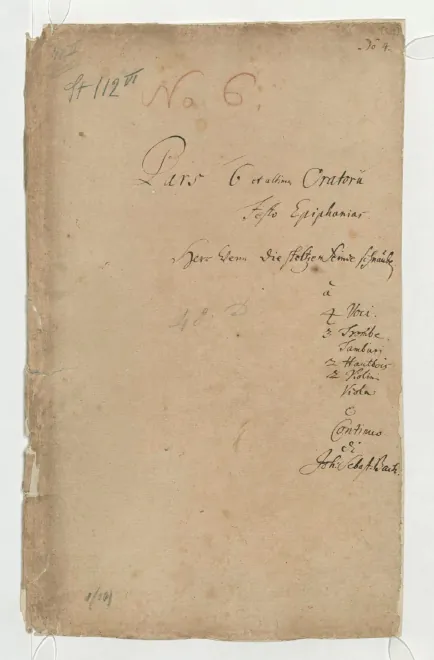 No 4.
St 112 VI
No 6.
Pars 6 et ultima Oratorii
Festo Epiphanias.
Herr wenn die stoltzen Feinde schnauben
à
4 Voci.
3 Trombe.
Tamburi
2 Hautbois
2 Violini
Viola
e
Continuo
di
Joh: Sebast: Bach.